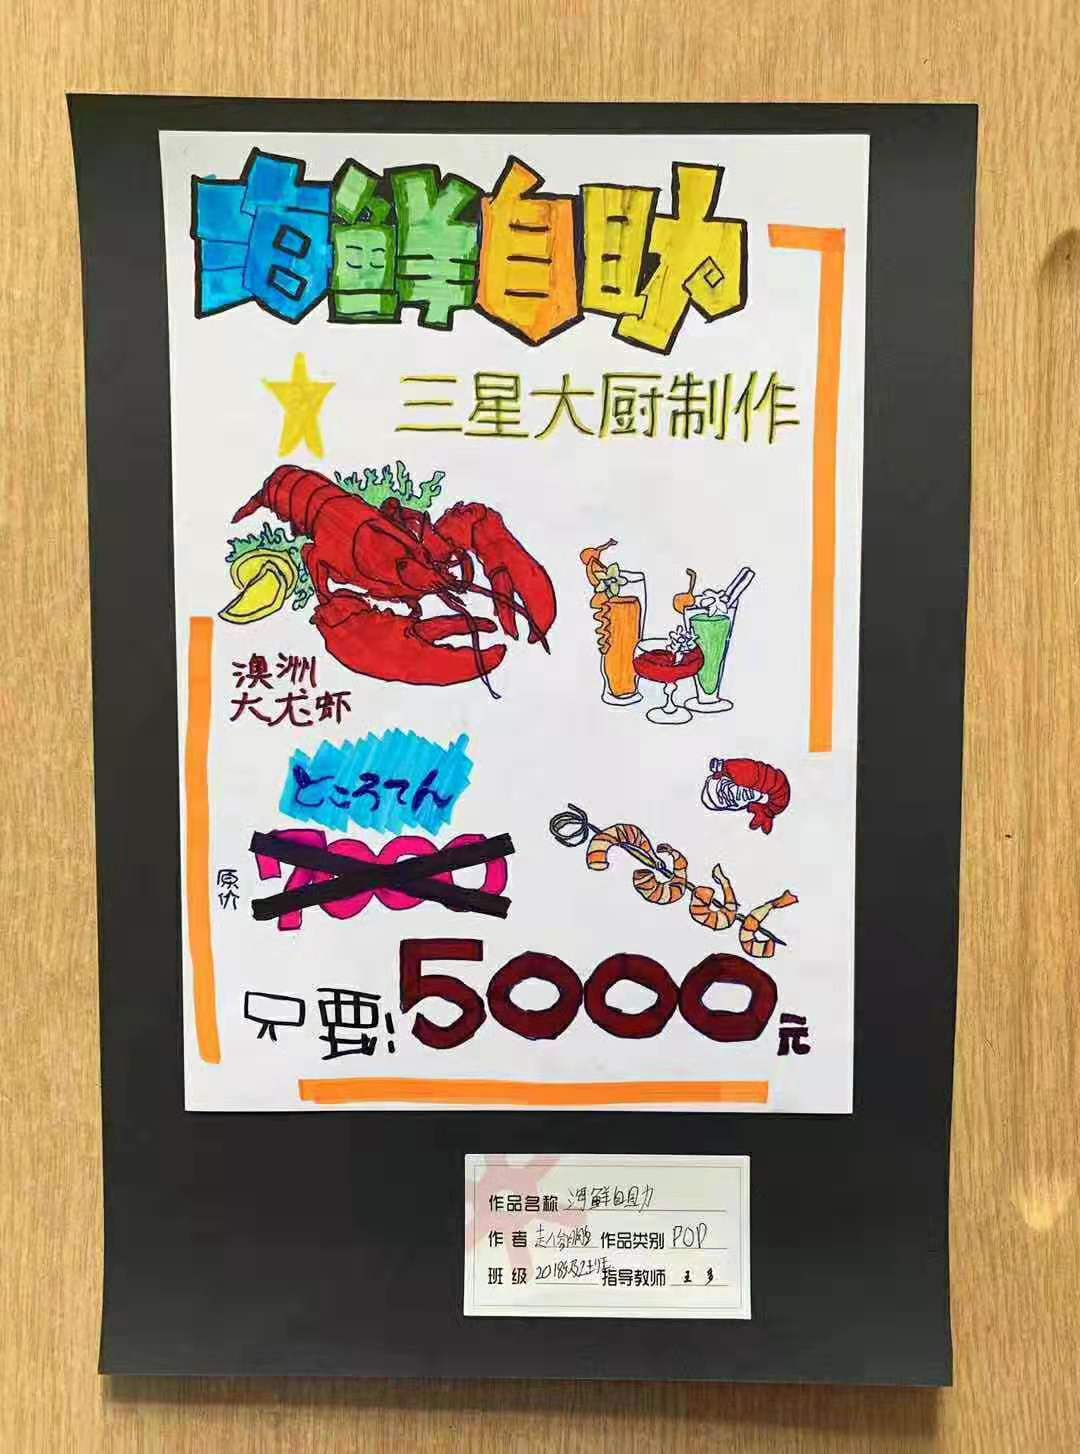 海鲜自助
三星大厨制作
澳洲
大龙虾
ところてん
原价
7000
只要!5000元
作品名称 海鲜自助
作者 作品类别 POP
班级 指导教师 王多